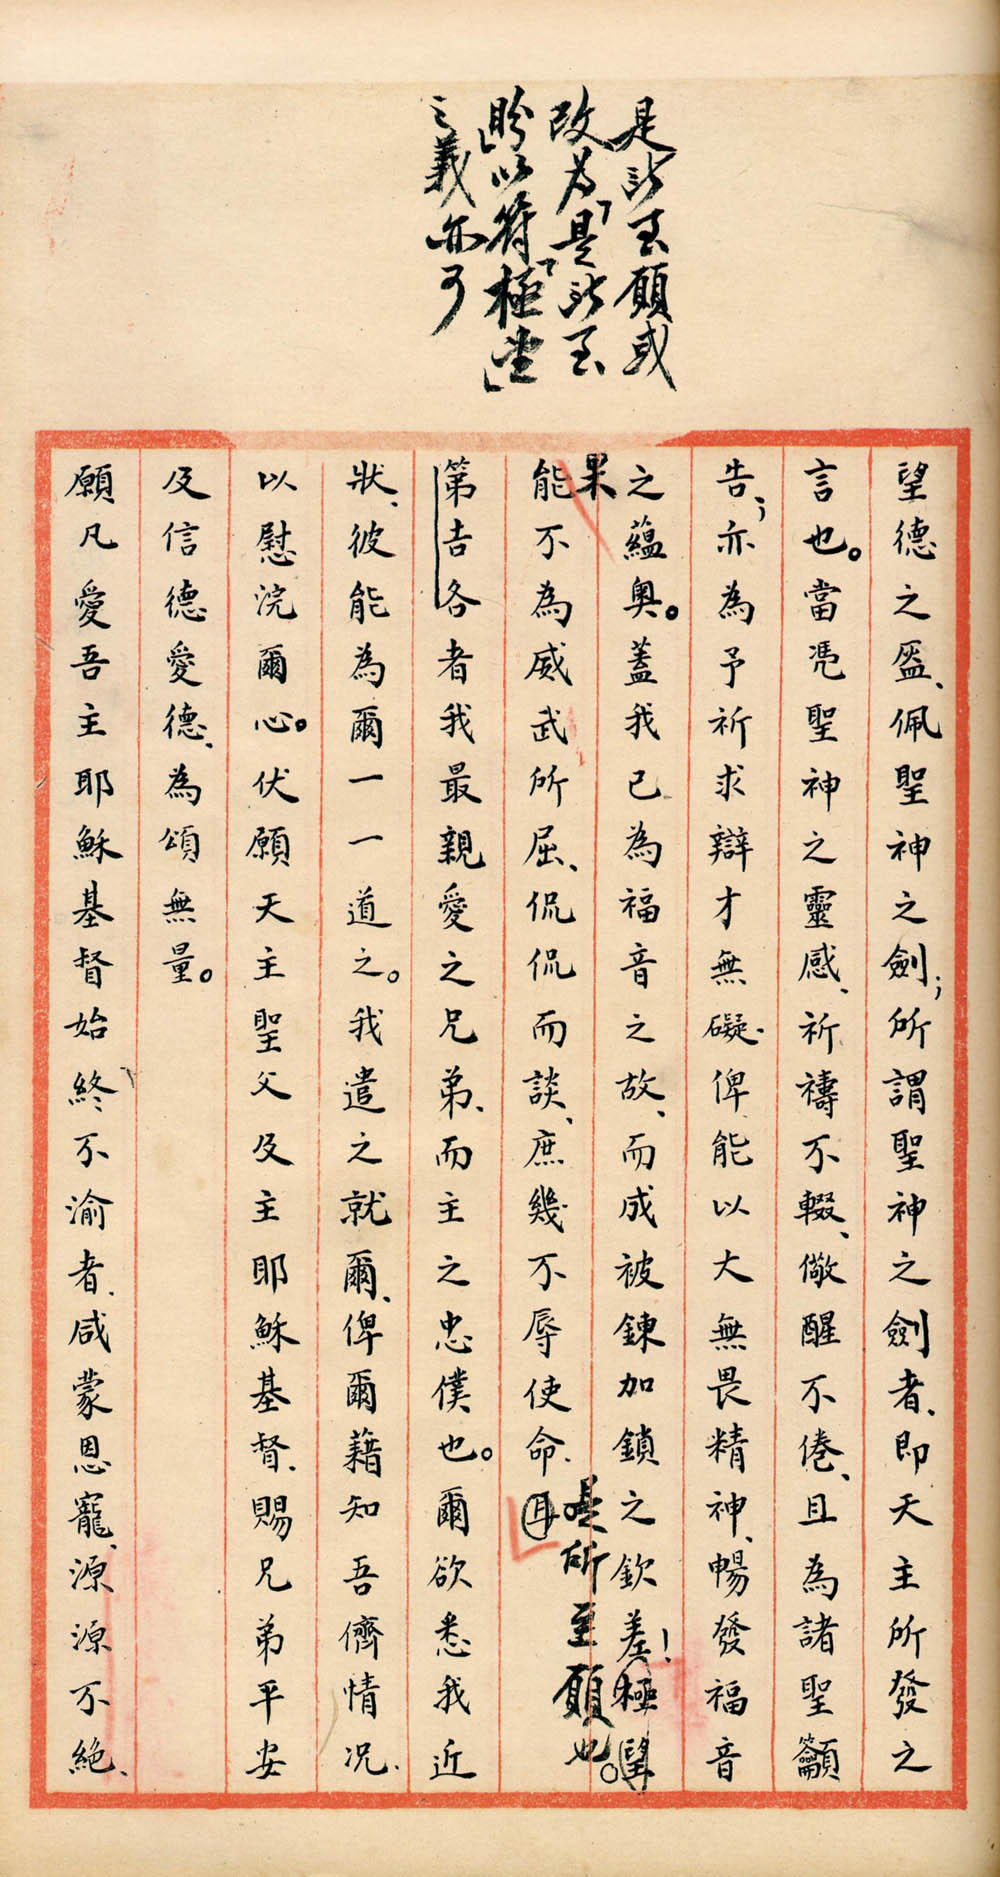 是所至願或
改為「是所至
盼」以符「極望」
之義亦可
望德之盔、佩聖神之劍；所謂聖神之劍者、即天主所發之
言也。當憑聖神之靈感、祈禱不輟、儆醒不倦、且為諸聖籲
告；亦為予祈求辯才無礙．俾能以大無畏精神、暢發福音
之蘊奧。蓋我已為福音之故、而成被鍊加鎖之欽差！極望
果
能不為威武所屈、侃侃而談、庶幾不辱使命．耳
是所至願也。
第吉各者我最親愛之兄弟、而主之忠僕也。爾欲悉我近
狀、彼能為爾一一道之。我遣之就爾、俾爾藉知吾儕情況．
以慰浣爾心。伏願天主聖父及主耶穌基督、賜兄弟平安
及信德愛德、為頌無量。
願凡愛吾主耶穌基督始終不渝者、咸蒙恩寵、源源不絕、